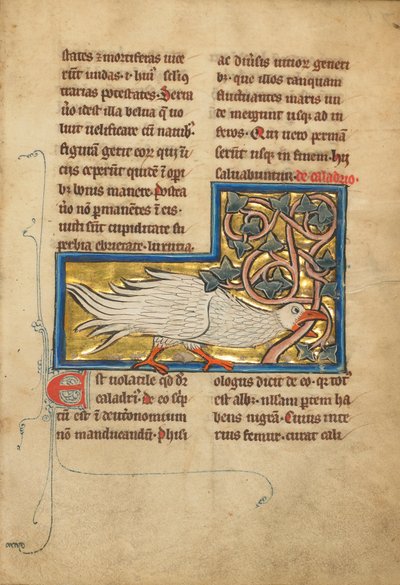 states ⁊ mortiferas uice
rūt undas · i · hui' sc̄li ꝯ
trarias potestates · Serra
u̇o id est illa belua q̄ uo
luit uelificare cū nauib'
figurā gerit eoꝝ qui in i
ciis ceperūt ī opi
bꝫ bonis manere · postea
u̇o nō ꝑmanētes ī eis ·
uicti sūt cupiditate su
perbia ebrietate · luxuria ·
ac diūsis uitioꝝ generi
bꝫ · que illos tanquam
fluctuantes maris un
de mergunt usqꝫ ad in
feros · Qui uero perman
serunt usqꝫ in finem · hii
saluabuntur · de caladrio ·
Est uolatile qđ dr̄
caladri' · De eo sc̄p
tū est ī deutonomium
nō manducandū · Phisi
ologus dicit de eo · qꝛ tot'
est alb' · nllam partem ha
bens nigrā · Cuius inte
rius femur · curat cali